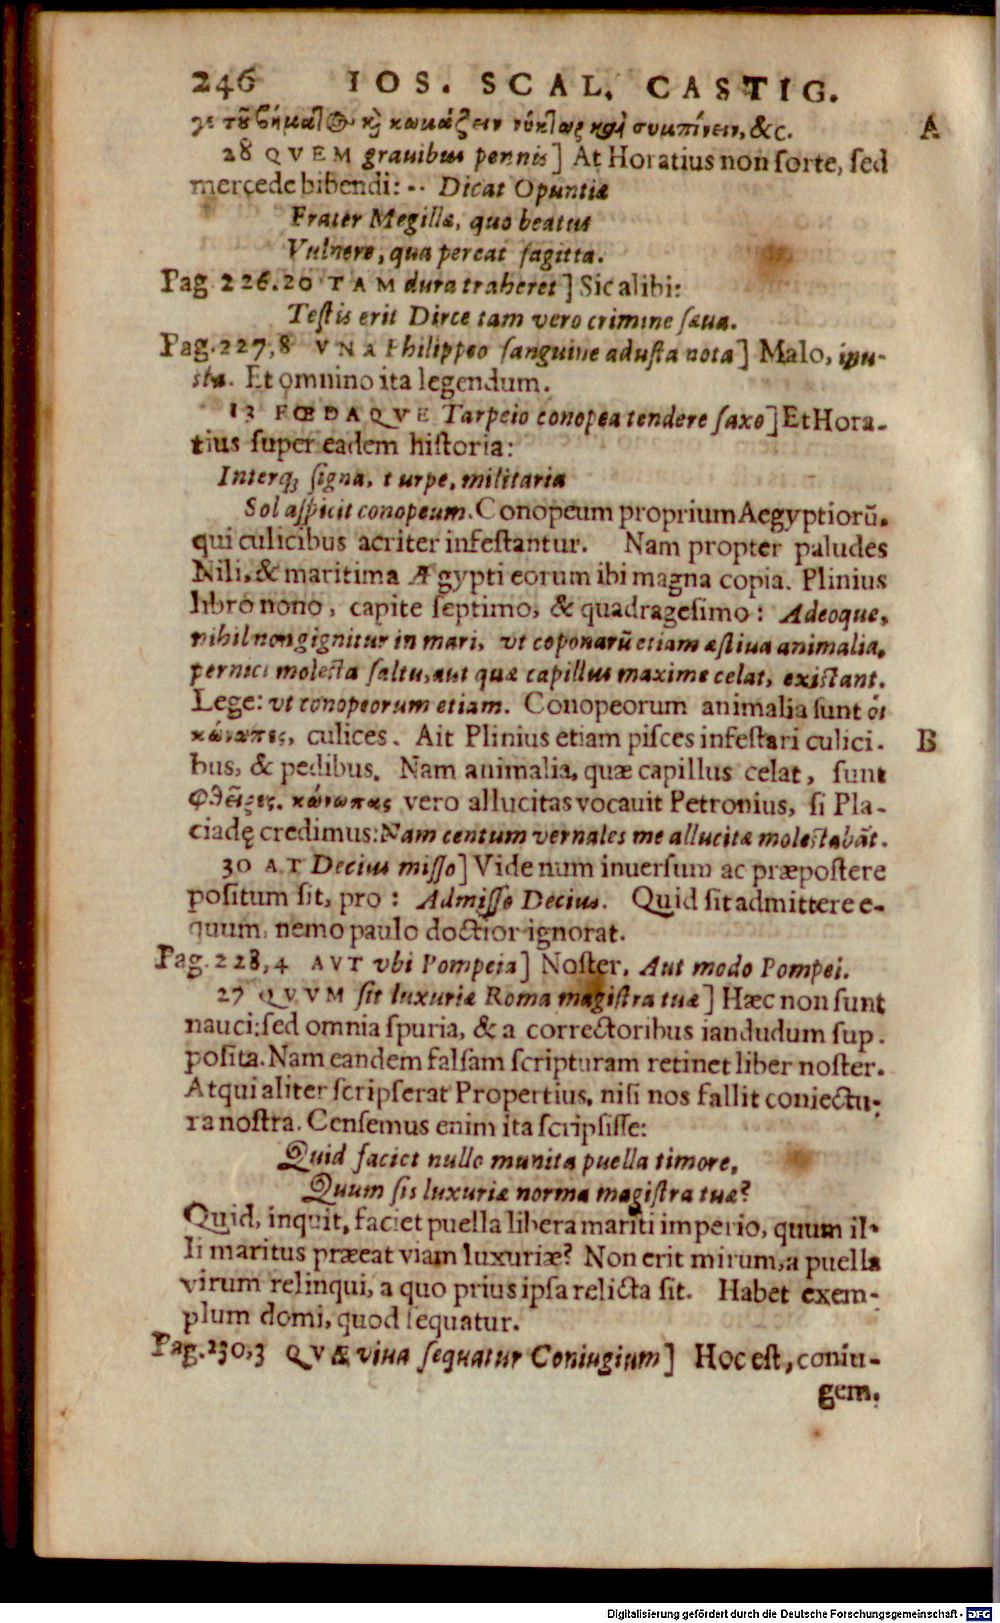 246 IOS. SCAL. CASTIG.
τοῦ βήματος καὶ κωμάζειν νύκτως καὶ συμπίνειν, &c. A
28 QVEM grauibus pennis] At Horatius non sorte, sed
mercede bibendi: ·· Dicat Opuntiæ
Frater Megillæ, quo beatus
Vulnere, qua pereat sagitta.
Pag. 226.20 TAM dura traheret] Sic alibi:
Testis erit Dirce tam vero crimine sæua.
Pag. 227,8 VNA Philippeo sanguine adusta nota] Malo, inu-
sta. Et omnino ita legendum.
13 FŒDAQVE Tarpeio conopea tendere saxo] Et Hora-
tius super eadem historia:
Interq; signa, turpe, militaria
Sol aspicit conopeum. Conopeum proprium Aegyptiorū.
qui culicibus acriter infestantur. Nam propter paludes
Nili, & maritima Ægypti eorum ibi magna copia. Plinius
libro nono, capite septimo, & quadragesimo: Adeoque,
nihil non gignitur in mari, vt coponarū etiam æstiua animalia,
pernici molesta saltu, aut quæ capillus maxime celat, existant.
Lege: vt conopeorum etiam. Conopeorum animalia sunt οἱ
κώνωπες, culices. Ait Plinius etiam pisces infestari culici- B
bus, & pedibus. Nam animalia, quæ capillus celat, sunt
φθεῖρες. κώνωπας vero allucitas vocauit Petronius, si Pla-
ciadę credimus: Nam centum vernales me allucitæ molestabāt.
30 AT Decius misso] Vide num inuersum ac præpostere
positum sit, pro: Admisso Decius. Quid sit admittere e-
quum, nemo paulo doctior ignorat.
Pag. 228,4 AVT vbi Pompeia] Noster, Aut modo Pompei.
27 QVVM sit luxuriæ Roma magistra tuæ] Hæc non sunt
nauci: sed omnia spuria, & a correctoribus iandudum sup-
posita. Nam eandem falsam scripturam retinet liber noster.
Atqui aliter scripserat Propertius, nisi nos fallit coniectu-
ra nostra. Censemus enim ita scripsisse:
Quid faciet nullo munita puella timore,
Quum sis luxuriæ norma magistra tuæ?
Quid, inquit, faciet puella libera mariti imperio, quum il-
li maritus præeat viam luxuriæ? Non erit mirum, a puella
virum relinqui, a quo prius ipsa relicta sit. Habet exem-
plum domi, quod sequatur.
Pag. 230,3 QVÆ viua sequatur Coniugium] Hoc est, coniu-
gem.
Digitalisierung gefördert durch die Deutsche Forschungsgemeinschaft - DFG